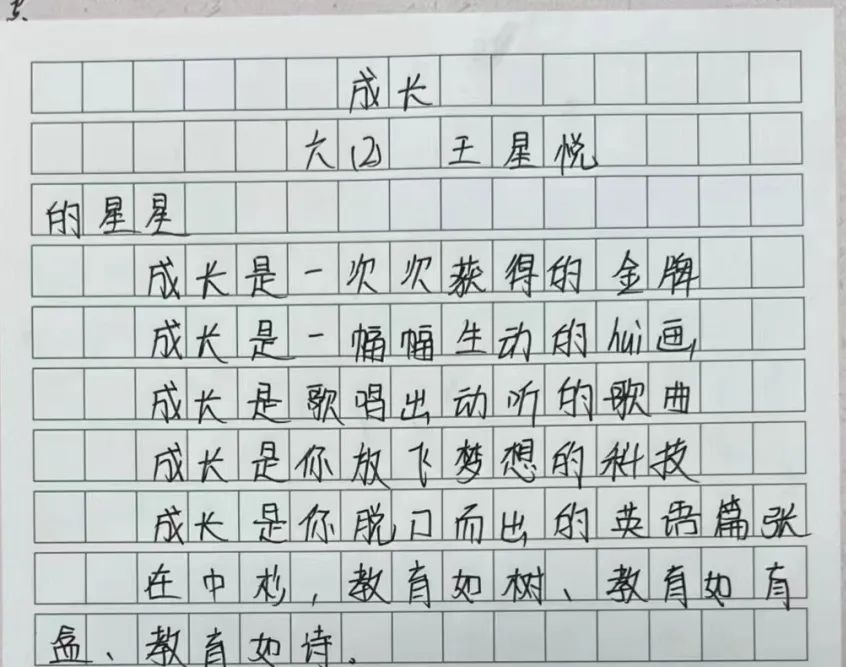 成长
六(2) 王星悦
的星星
成长是一次次获得的金牌
成长是一幅幅生动的hui画,
成长是歌唱出动听的歌曲
成长是你放飞梦想的科技
成长是你脱口而出的英语篇张
在中杉,教育如树、教育如育
盆、教育如诗。